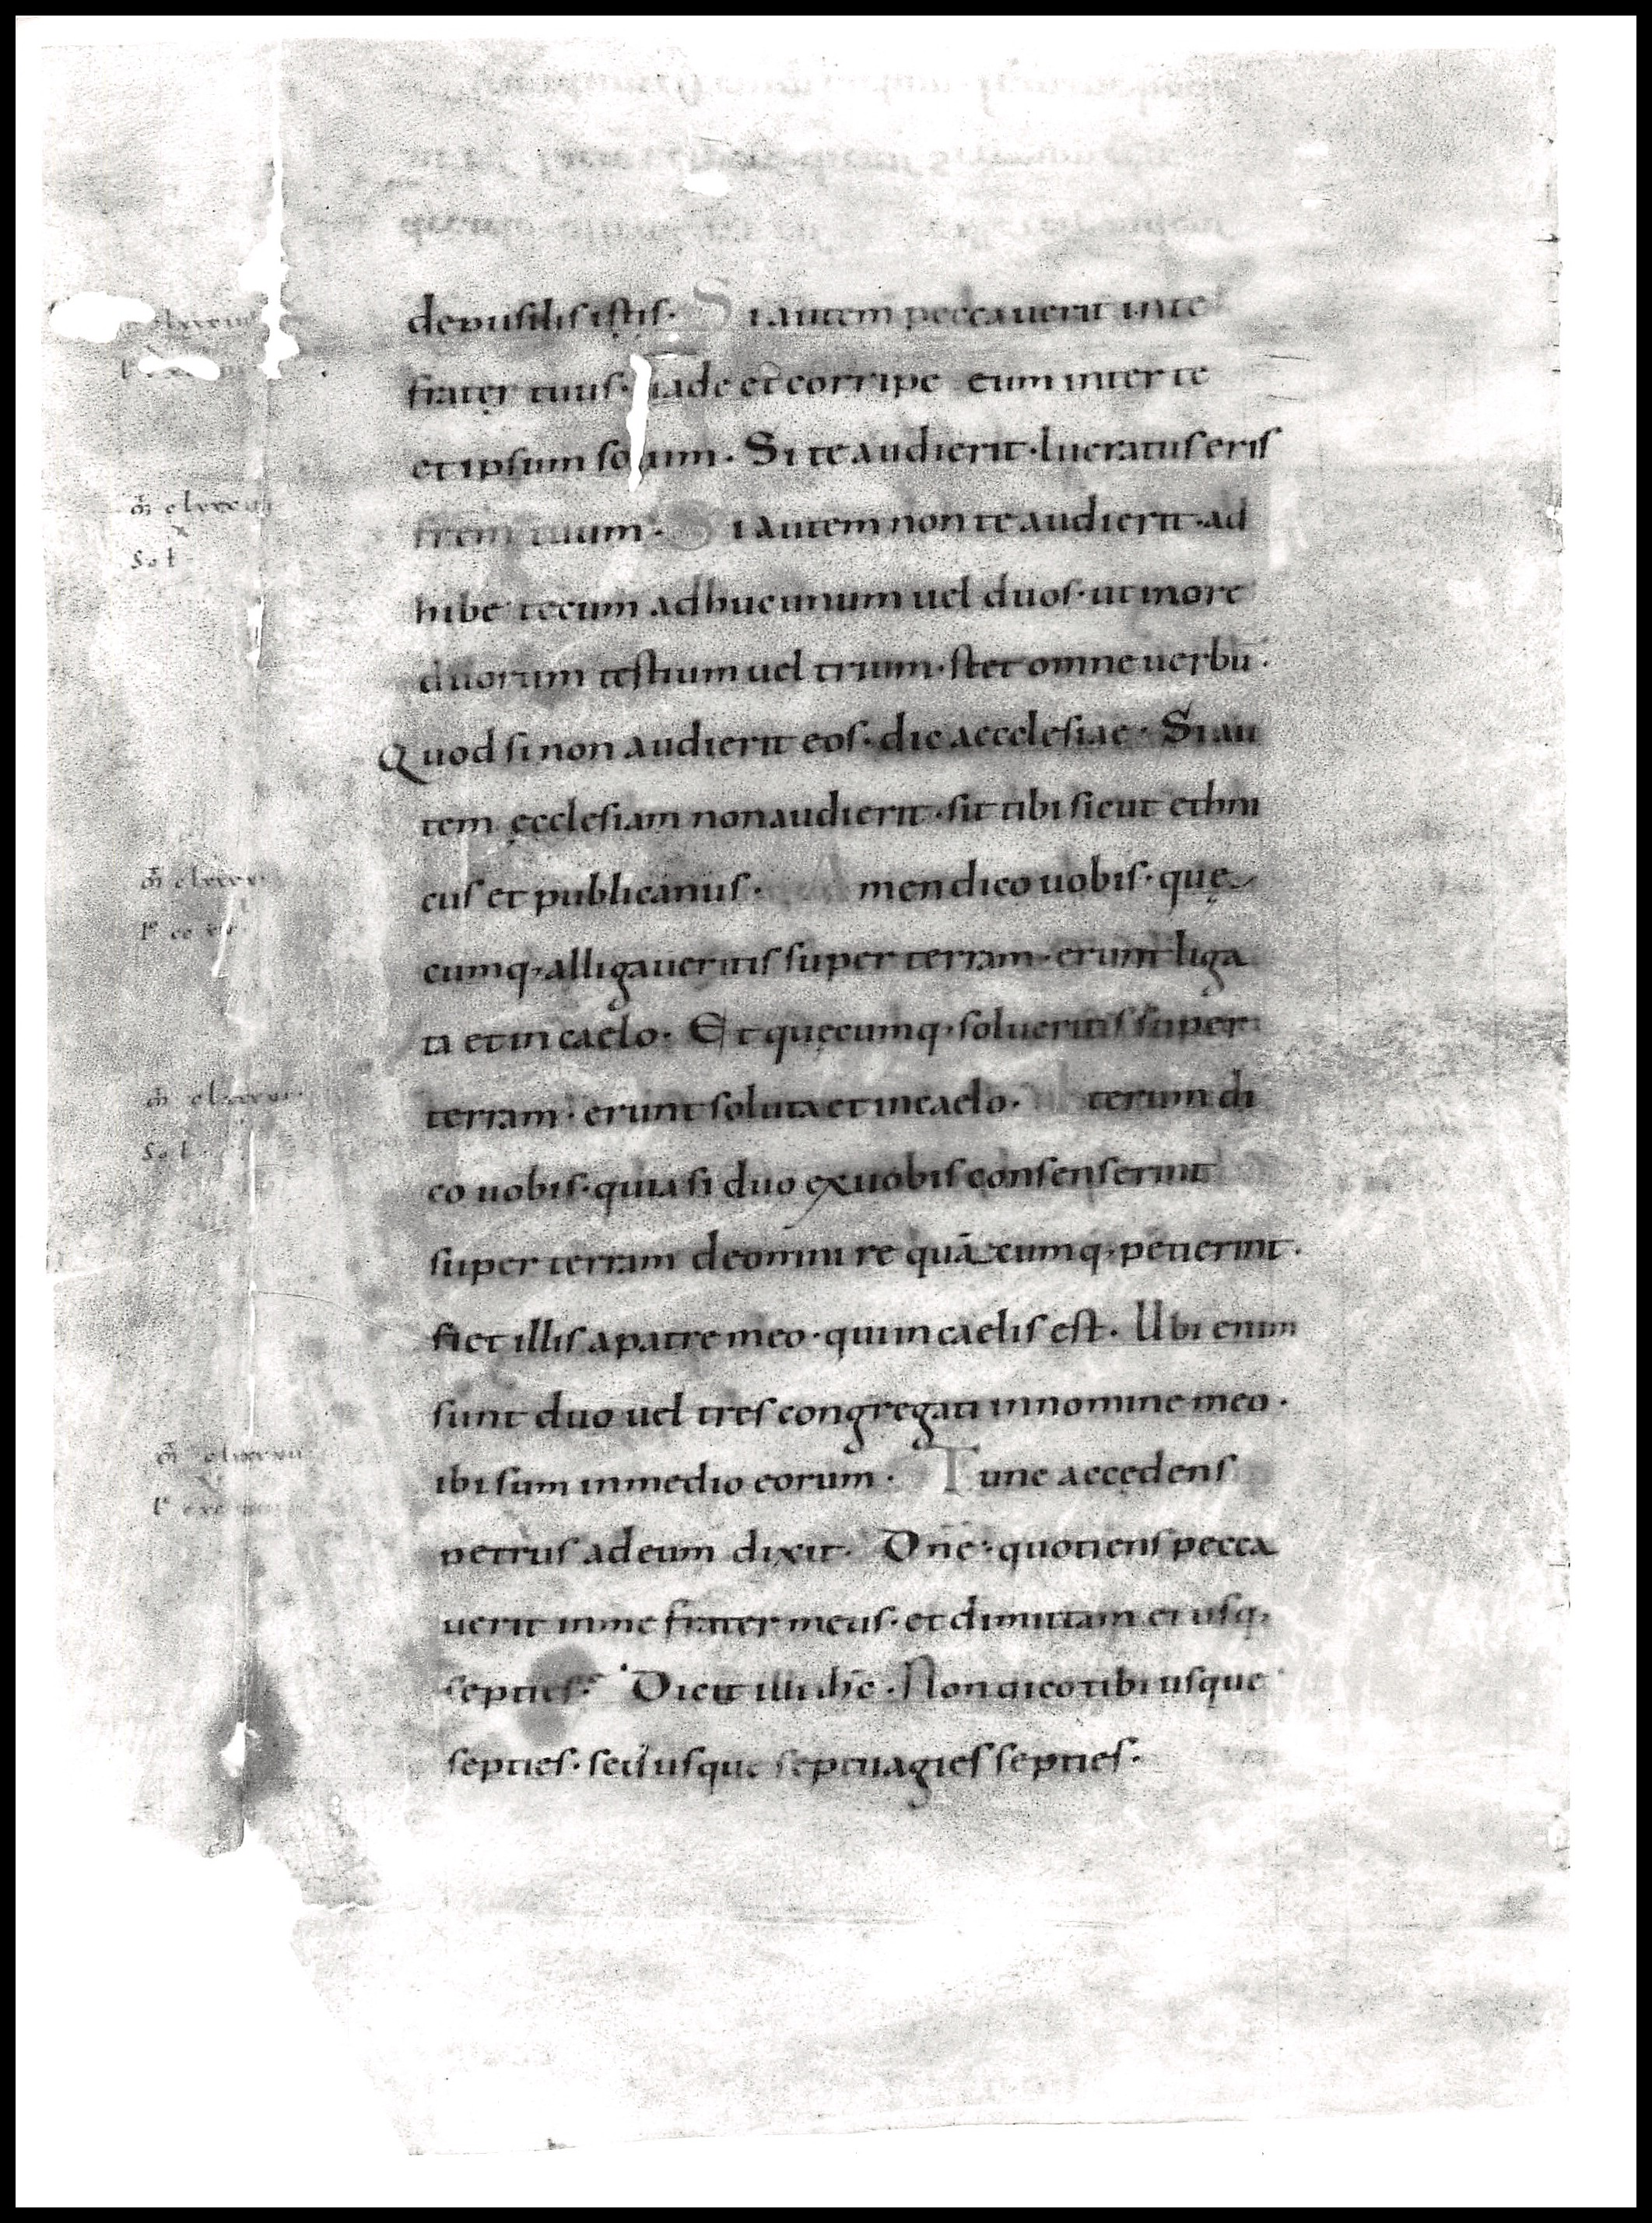 de pusillis istis. Si autem peccauerit in te
frater tuus. uade et corripe eum inter te
et ipsum solum. Si te audierit. lucratus eris
frem tuum. Si autem non te audierit. ad
hibe tecum adhuc unum uel duos. ut in ore
duorum testium uel trium. stet omne uerbū.
Quod si non audierit eos. dic aecclesiae. Si au
tem ęcclesiam non audierit. sit tibi sicut ethni
cus et publicanus. Amen dico uobis. quę
cumq; alligaueritis super terram. erunt liga
ta et in caelo. Et quęcumq; solueritis super
terram. erunt soluta et in caelo. terum di
co uobis. quia si duo ex uobis consenserint
super terram de omni re quācumq; petierint.
fiet illis a patre meo. qui in caelis est. Ubi enim
sunt duo uel tres congregati in nomine meo.
ibi sum in medio eorum. Tunc accedens
petrus ad eum dixit. Dnē. quotiens pecca
uerit in me frater meus. et dimittam ei usq;
septies. Dicit illi ihc̄. Non dico tibi usque
septies. sed usque septuagies septies.